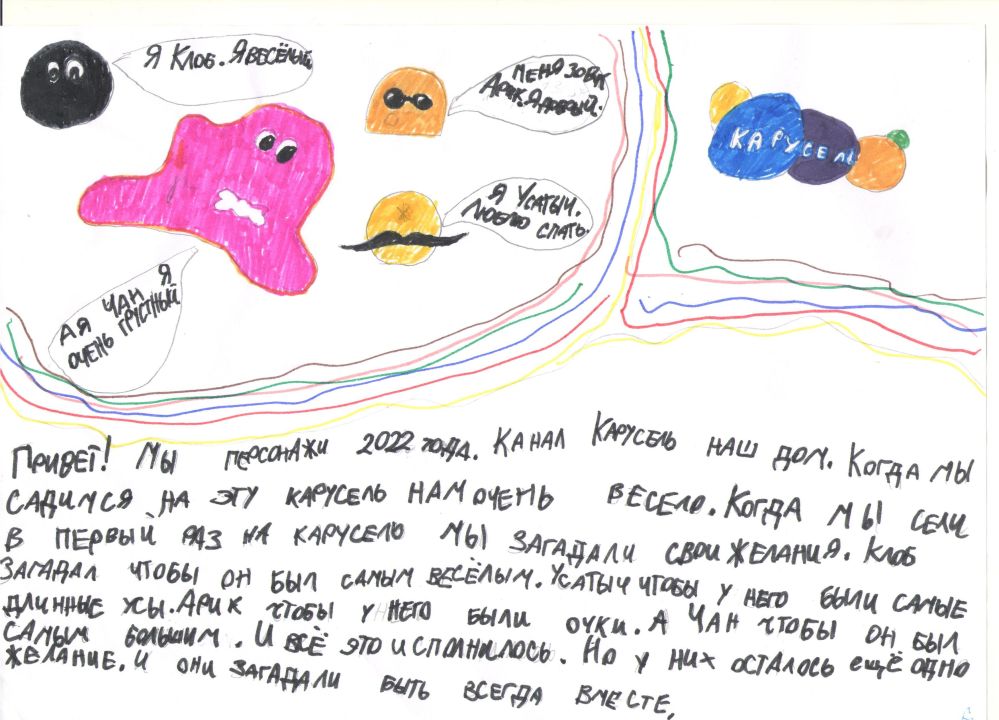 Я Клоб. Я весёлый
Меня зовут
Арик. Я добрый.
КАРУСЕЛЬ
Я Усатыч.
Люблю спать.
А я Чан я
очень грустный
Привет! Мы персонажи 2022 года. Канал Карусель наш дом. Когда мы
садимся на эту карусель нам очень весело. Когда мы сели
в первый раз на карусело мы загадали свои желания. Клоб
загадал чтобы он был самым весёлым. Усатыч чтобы у него были самые
длинные усы. Арик чтобы у него были очки. А Чан чтобы он был
самым большим. И всё это исполнилось. Но у них осталось ещё одно
желание. И они загадали быть всегда вместе,